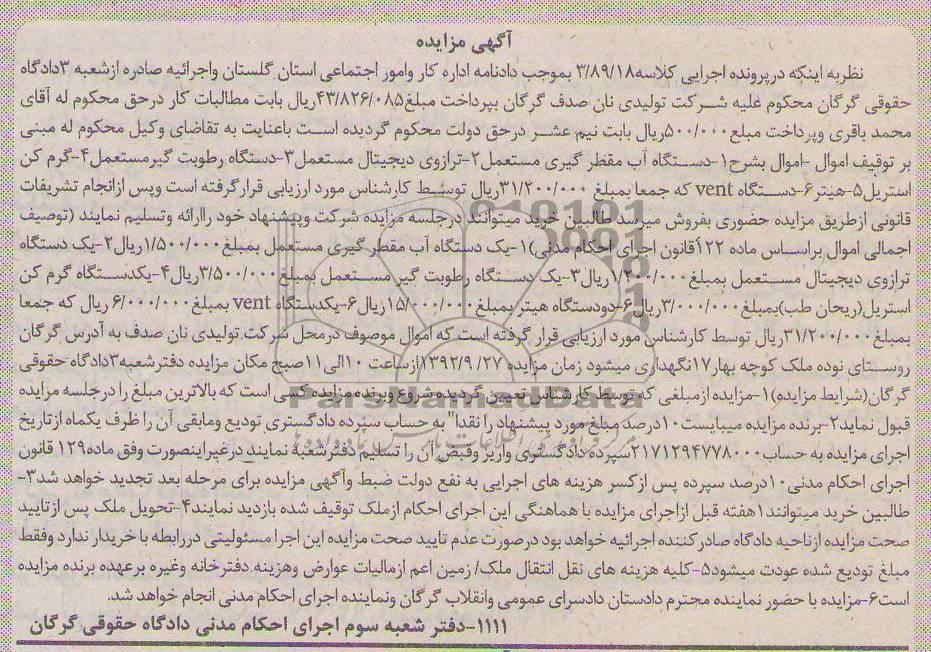 آگهی مزایده
نظربه اینکه درپرونده اجرایی کلاسه۳/۸۹/۱۸ بموجب دادنامه اداره کار وامور اجتماعی استان گلستان واجرائیه صادره ازشعبه ۳دادگاه
حقوقی گرگان محکوم علیه شرکت تولیدی نان صدف گرگان بپرداخت مبلغ۴۳/۸۲۶/۰۸۵ریال بابت مطالبات کار درحق محکوم له آقای
محمد باقری وپرداخت مبلغ۵۰۰/۰۰۰ریال بابت نیم عشر درحق دولت محکوم گردیده است باعنایت به تقاضای وکیل محکوم له مبنی
بر توقیف اموال -اموال بشرح۱-دستگاه آب مقطر گیری مستعمل۲-ترازوی دیجیتال مستعمل۳-دستگاه رطوبت گیرمستعمل۴-گرم کن
استریل۵-هیتر۶-دستگاه vent که جمعا بمبلغ ۳۱/۲۰۰/۰۰۰ریال توسط کارشناس مورد ارزیابی قرارگرفته است وپس ازانجام تشریفات
قانونی ازطریق مزایده حضوری بفروش میرسد طالبین خرید میتوانند درجلسه مزایده شرکت وپیشنهاد خود راارائه وتسلیم نمایند (توصیف
اجمالی اموال براساس ماده ۲۲اقانون اجرای احکام مدنی)۱-یک دستگاه آب مقطر گیری مستعمل بمبلغ۱/۵۰۰/۰۰۰ریال۲-یک دستگاه
ترازوی دیجیتال مستعمل بمبلغ۱/۲۰۰/۰۰۰ریال۳-یک دستگاه رطوبت گیر مستعمل بمبلغ۳/۵۰۰/۰۰۰ریال۴-یکدستگاه گرم کن
استریل(ریحان طب)بمبلغ۳/۰۰۰/۰۰۰ریال۶-دودستگاه هیتر بمبلغ۱۵/۰۰۰/۰۰۰ریال۶-یکدستگاه vent بمبلغ۶/۰۰۰/۰۰۰ ریال که جمعا
بمبلغ۳۱/۲۰۰/۰۰۰ریال توسط کارشناس مورد ارزیابی قرار گرفته است که اموال موصوف درمحل شرکت تولیدی نان صدف به آدرس گرگان
روستای نوده ملک کوچه بهار۱۷نگهداری میشود زمان مزایده ۱۳۹۲/۹/۲۷ازساعت ۱۰الی۱۱صبح مکان مزایده دفترشعبه۳دادگاه حقوقی
گرگان(شرایط مزایده)۱-مزایده ازمبلغی که توسط کارشناس تعیین گردیده شروع وبرنده مزایده کسی است که بالاترین مبلغ را درجلسه مزایده
قبول نماید۲-برنده مزایده میبایست۱۰درصد مبلغ مورد پیشنهاد را نقدا" به حساب سپرده دادگستری تودیع ومابقی آن را ظرف یکماه ازتاریخ
اجرای مزایده به حساب۲۱۷۱۲۹۴۷۷۸۰۰۰سپرده دادگستری واریز وقبض آن را تسلیم دفترشعبه نمایند درغیراینصورت وفق ماده۱۲۹ قانون
اجرای احکام مدنی۱۰درصد سپرده پس ازکسر هزینه های اجرایی به نفع دولت ضبط وآگهی مزایده برای مرحله بعد تجدید خواهد شد۳-
طالبین خرید میتوانند۱هفته قبل ازاجرای مزایده با هماهنگی این اجرای احکام ازملک توقیف شده بازدید نمایند۴-تحویل ملک پس ازتایید
صحت مزایده ازناحیه دادگاه صادرکننده اجرائیه خواهد بود درصورت عدم تایید صحت مزایده این اجرا مسئولیتی دررابطه با خریدار ندارد وفقط
مبلغ تودیع شده عودت میشود۵-کلیه هزینه های نقل انتقال ملک/زمین اعم ازمالیات عوارض وهزینه دفترخانه وغیره برعهده برنده مزایده
است۶-مزایده با حضور نماینده محترم دادستان دادسرای عمومی وانقلاب گرگان ونماینده اجرای احکام مدنی انجام خواهد شد.
۱۱۱۱-دفتر شعبه سوم اجرای احکام مدنی دادگاه حقوقی گرگان
ParsNamadData